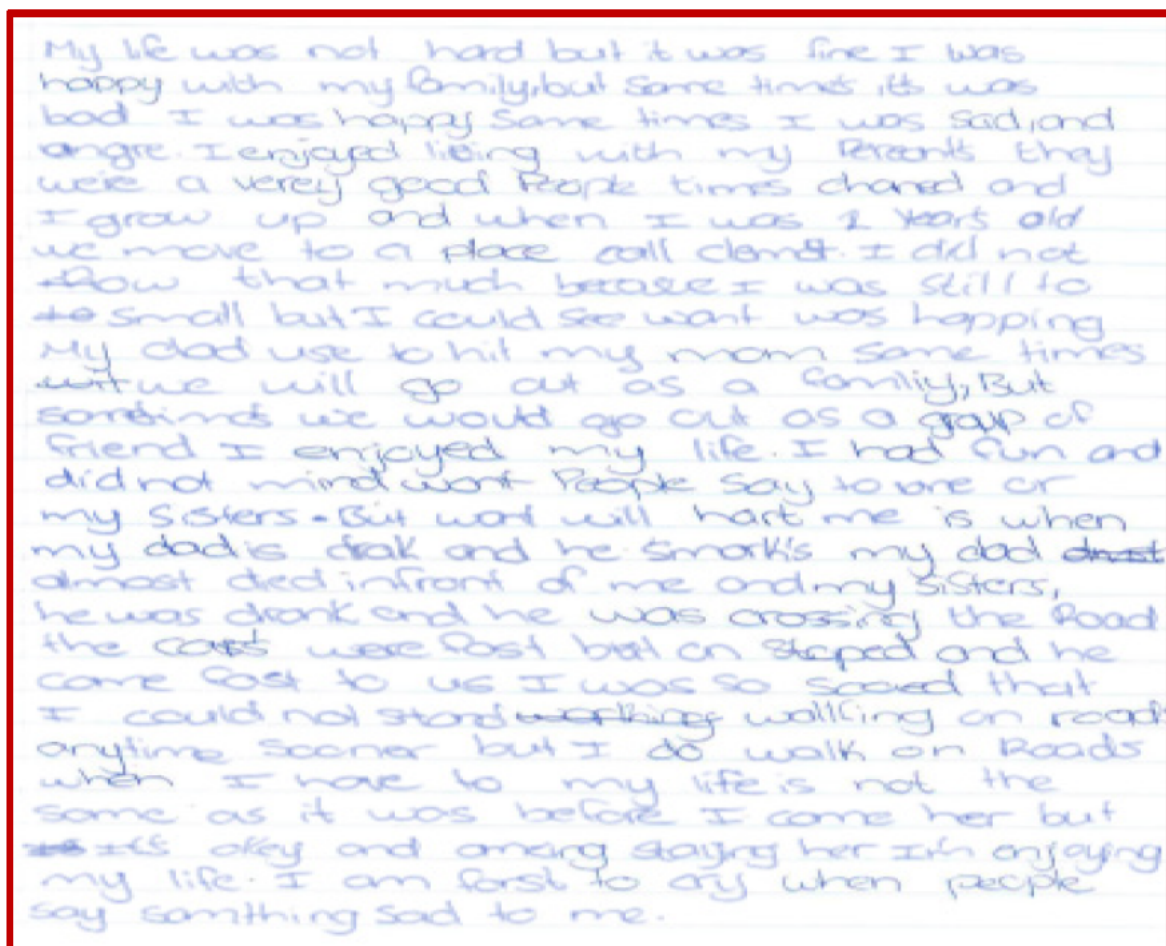 My life was not hard but it was fine I was
happy with my family, but some times, it's was
bad I was happy some times I was sad, and
angre. I enjoyed living with my Pereants they
were a verey good People times chaned and
I grow up and when I was 2 Years old
we move to a place call clemst. I did not
that much because I was still to
to small but I could see want was happing
My dad use to hit my mom some times
wit we will go out as a familiy, But
sometimes we would go out as a group of
friend I enjoyed my life. I had fun and
did not mind wont People say to me or
my Sisters. But wont will hart me is when
my dad is drak and he smork's my dad
almost died infront of me and my sisters,
he was drank and he was crossing the Road
the cars were fast but on staped and he
come fast to us I was so scared that
I could not stand walking on roads
anytime sooner but I do walk on Roads
when I have to my life is not the
same as it was before I come her but
it's okey and amazing staying her I'm enjoying
my life. I am forst to cry when people
say somthing sad to me.